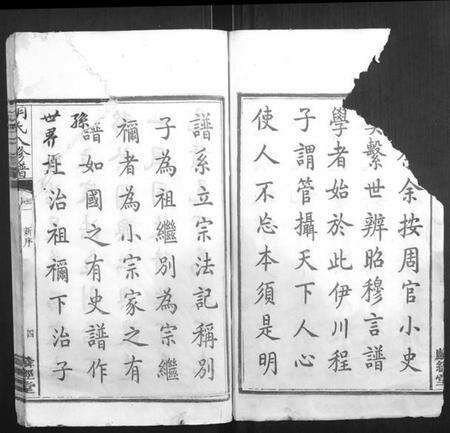 余按周官小史
奠繫世辨昭穆言譜
學者始於此伊川程
子謂管攝天下人心
使人不忘本須是明
譜系立宗法記稱別
子為祖繼別為宗繼
禰者為小宗家之有
譜如國之有史譜作
孫
世界上治祖禰下治子
氏八修譜
新序
四